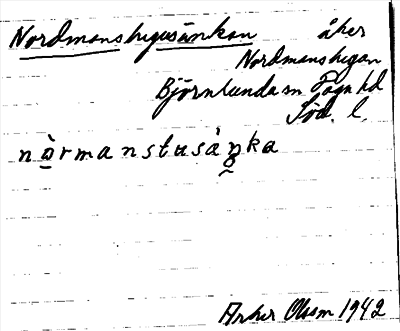 Nordmanshugusänkan åker
Nordmanshugan
Björnlunda sn Daga hd
Söd. l.
nòrmanstusàŋka
Olsson 1942